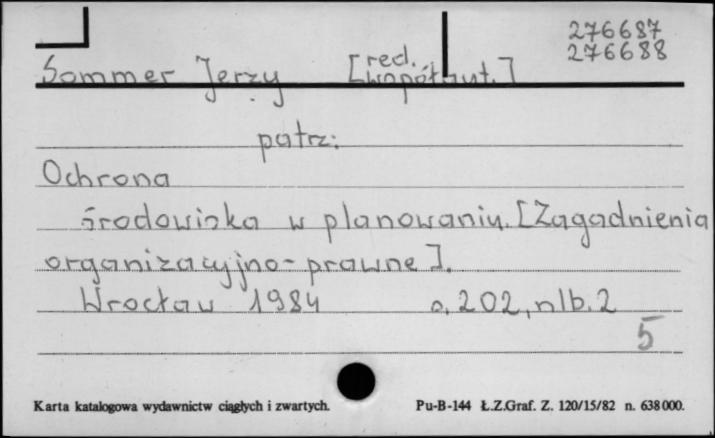 276687
276688
Sommer Jerzy [red.
[współaut.]
patrz:
Ochrona
środowiska w planowaniu. [Zagadnienia
organizacyjno-prawne].
Wrocław 1984 s. 202, nlb. 2
5
Karta katalogowa wydawnictw ciągłych i zwartych. Pu-B-144 Ł.Z.Graf. Z. 120/15/82 n. 638000.